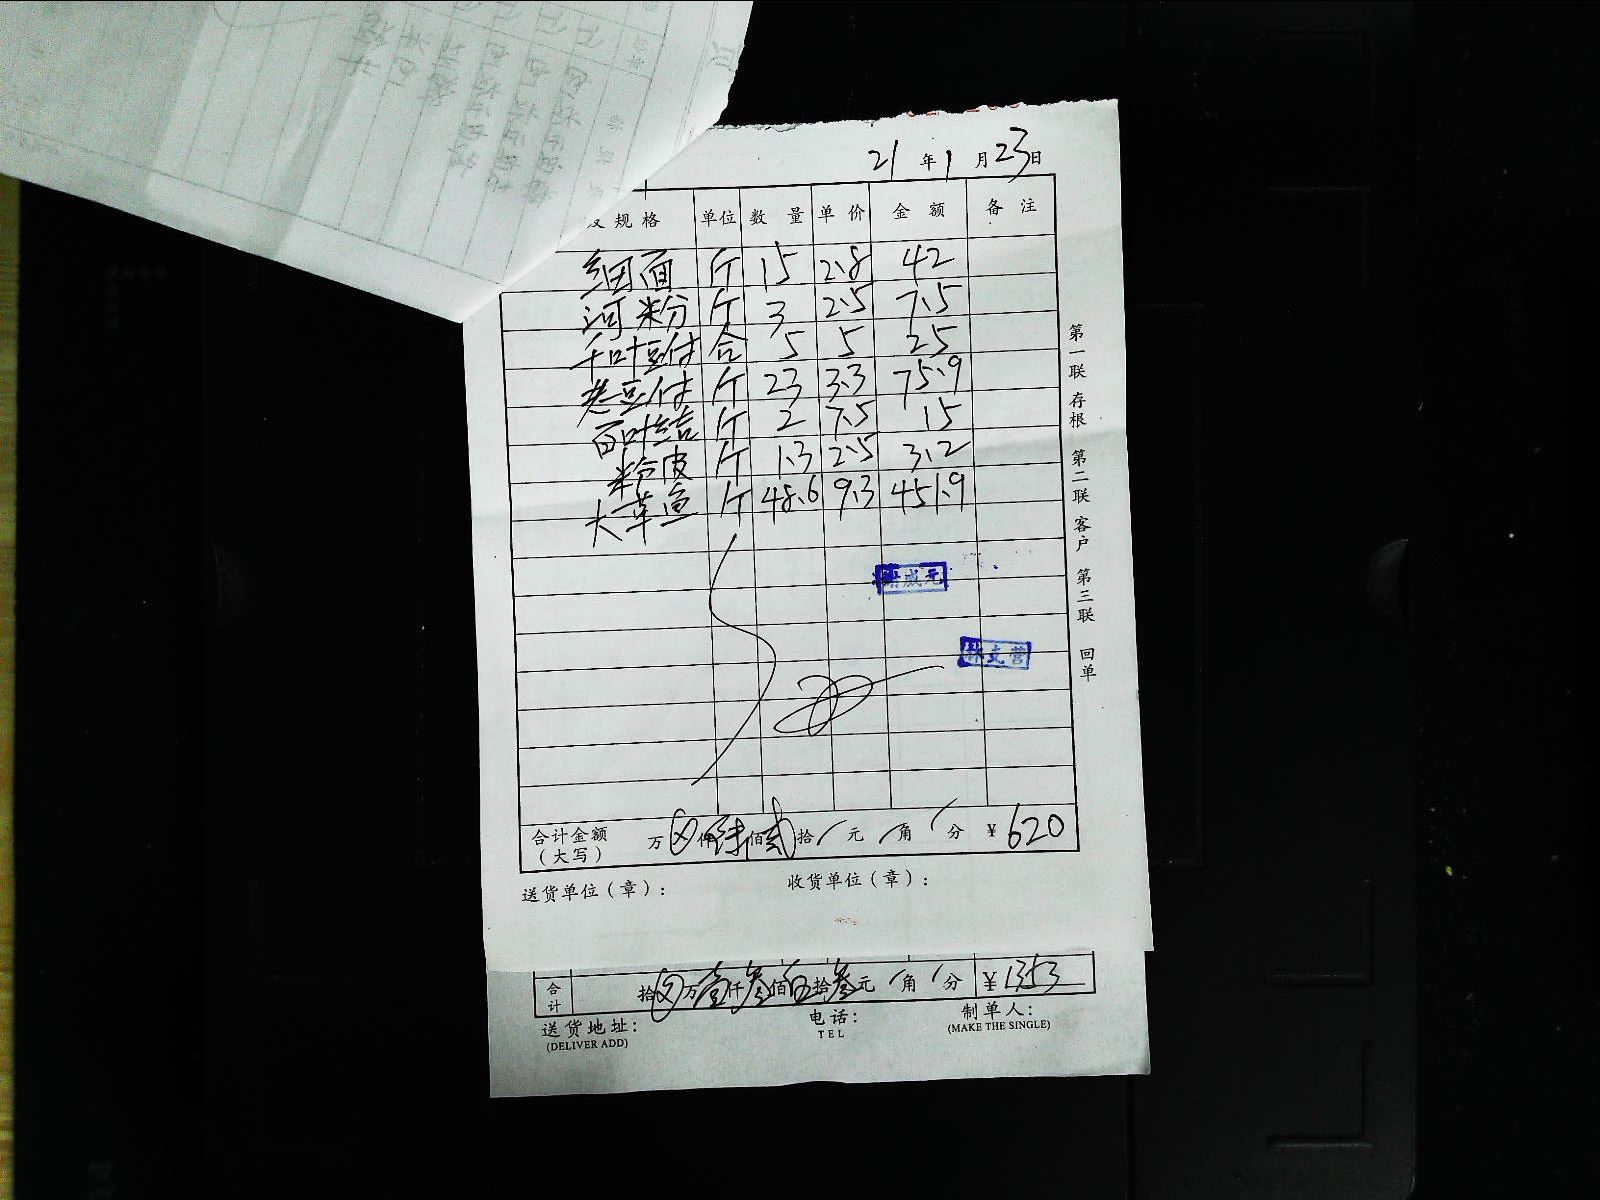 21年1月23日
规格 单位 数量 单价 金额 备注
细面 斤 15 2.8 42
河粉 斤 3 2.5 7.5
千叶豆付 合 5 5 25
老豆付 斤 23 3.3 75.9
百叶结 斤 2 7.5 15
粉皮 斤 1.3 2.5 3.2
大草鱼 斤 48.6 9.3 451.9
第一联 存根 第二联 客户 第三联 回单
合计金额 万 仟陆佰贰拾 元 角 分 ¥620
（大写）
送货单位（章）： 收货单位（章）：
合计 拾 万壹仟叁佰伍拾叁元 角 分 ¥1353
送货地址： 电话： 制单人：
(DELIVER ADD) TEL (MAKE THE SINGLE)